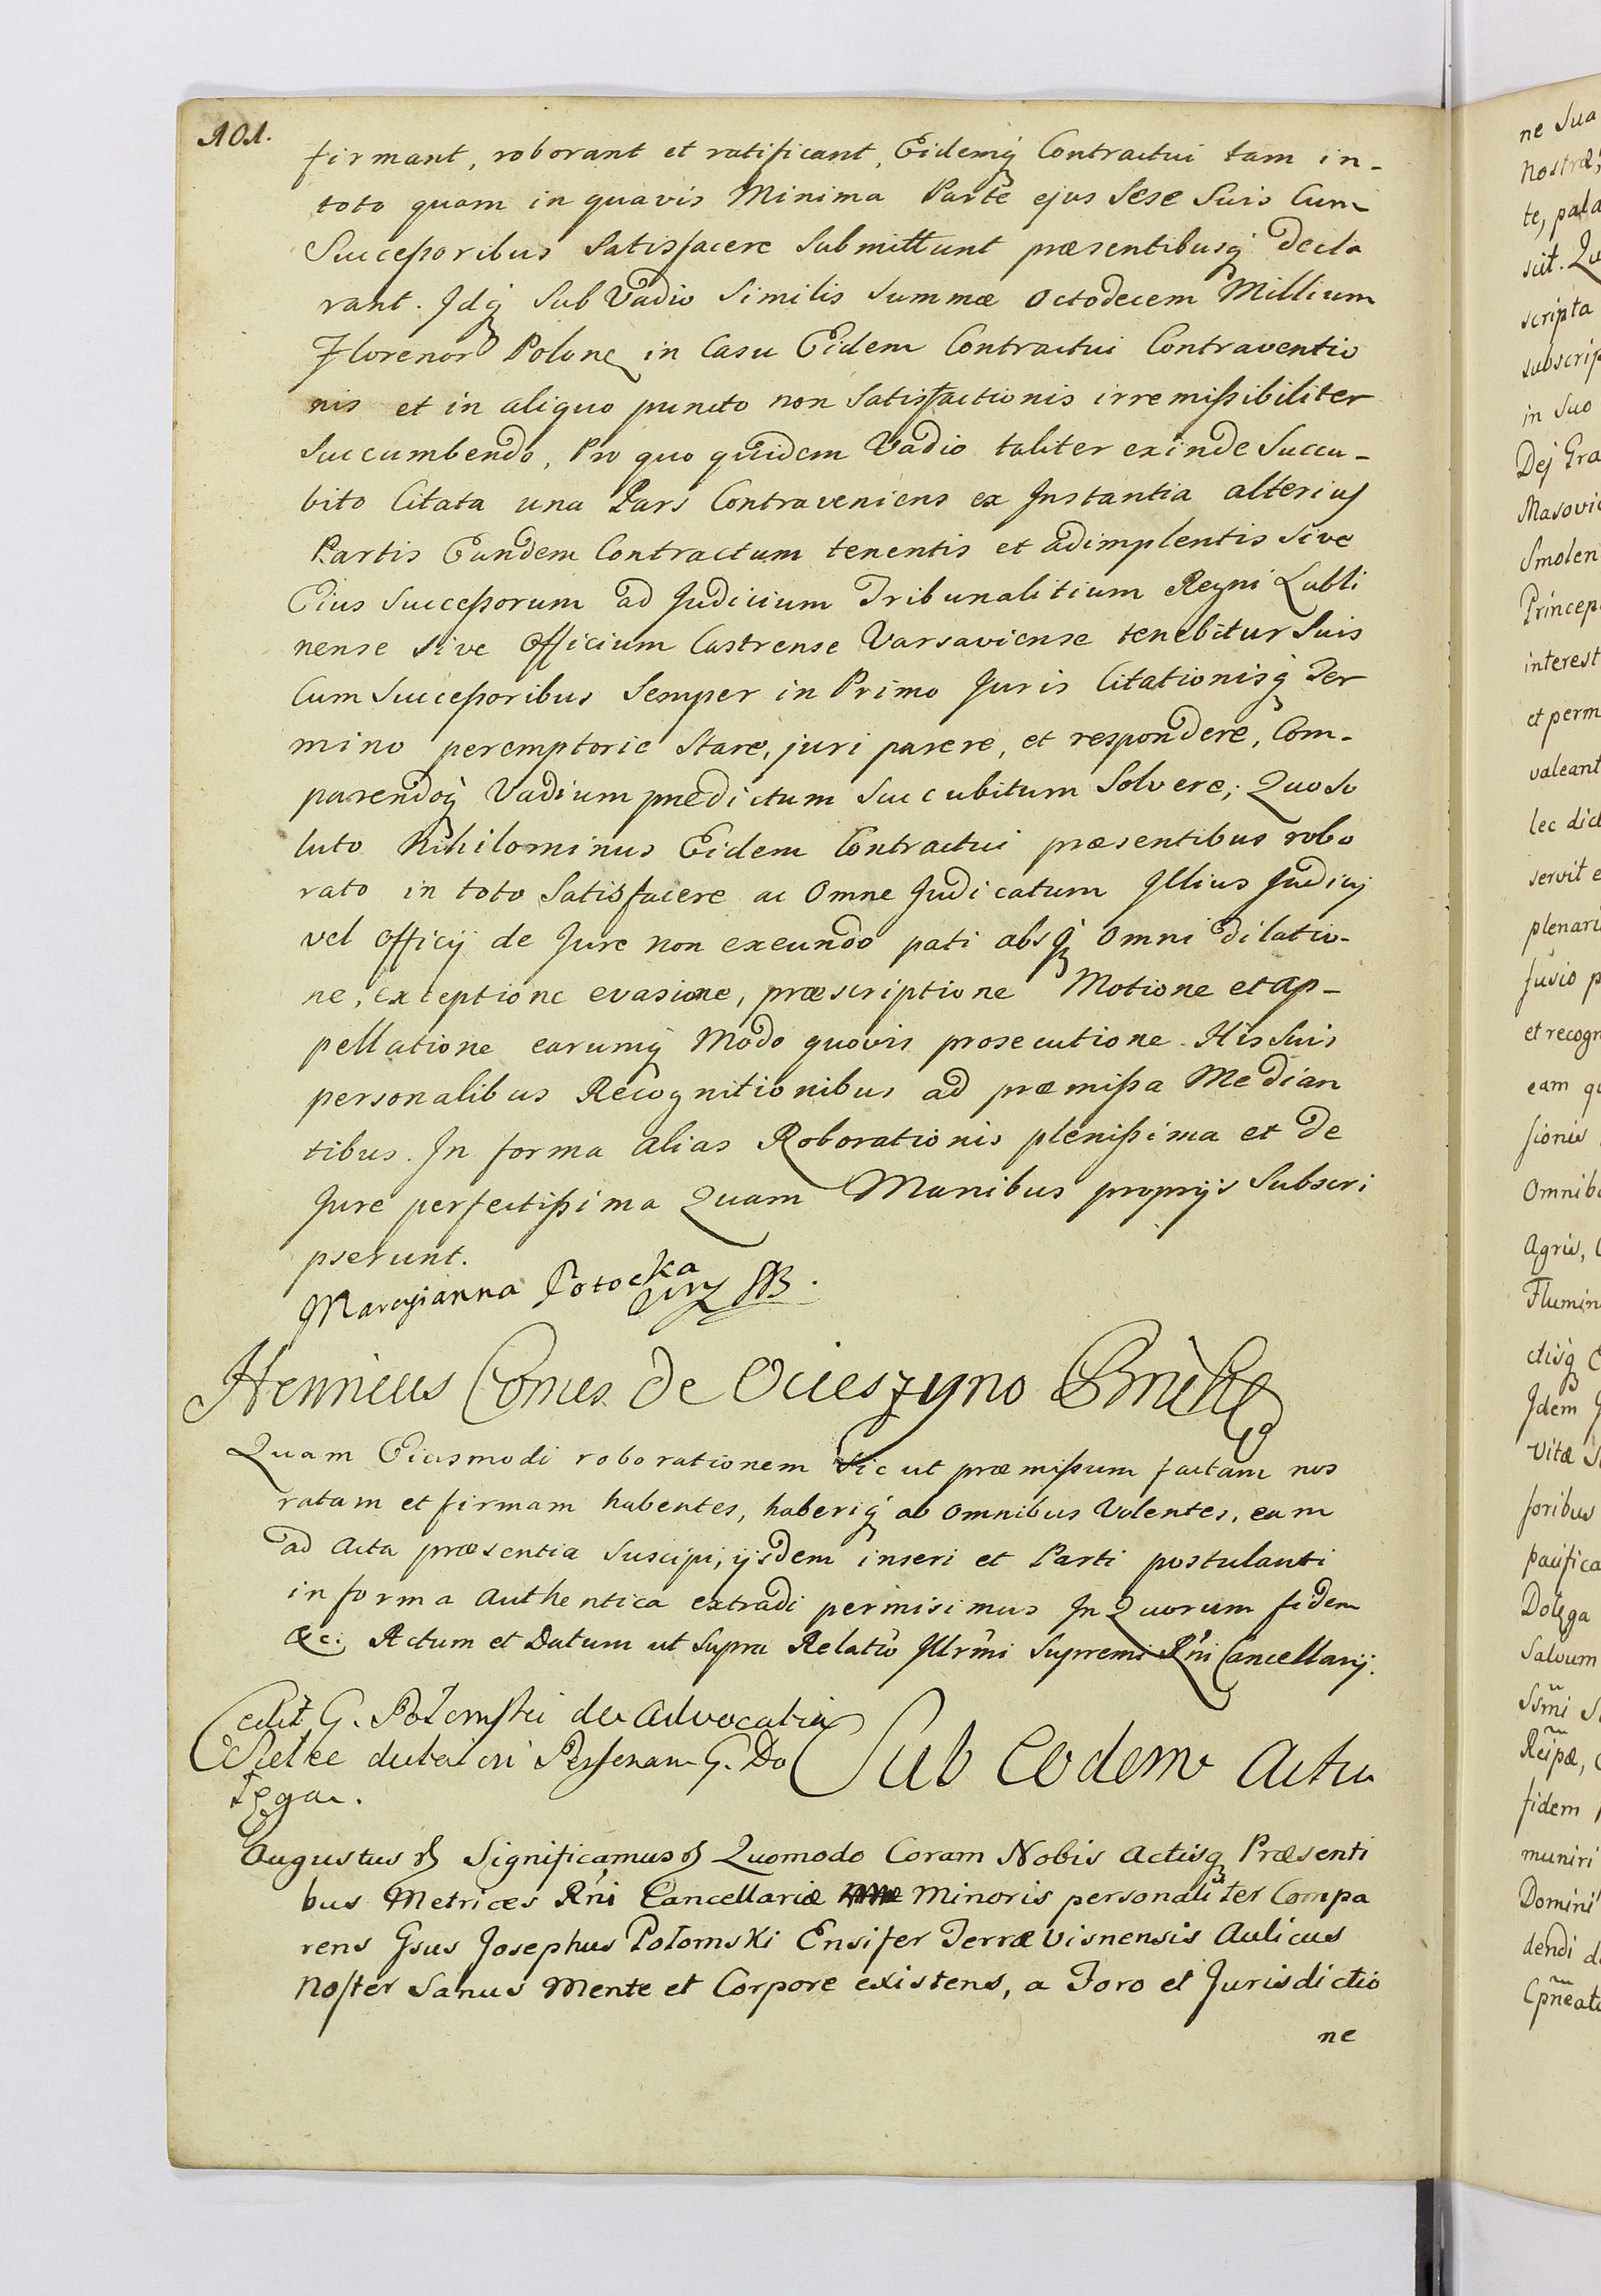 101.
firmant, roborant et ratificant, Eidemq Contractui tam in-
toto quam in quavis Minima Parte ejus sese Suis Cum
Successoribus Satisfacere Submittunt præsentibusq decla
rant. Jdq Sub Vadio Similis Summæ Octodecem Millium
Florenor Polonc in Casu Eidem Contractui Contraventio
nis et in aliquo puncto non Satisfactionis irremissibiliter
Succumbendo, Pro quo quidem Vadio taliter exinde Succu-
bito Citata una Pars Contraveniens ex Instantia alterius
Partis Eundem Contractum tenentis et adimplentis sive
Eius Successorum ad Judicium Tribunalitium Regni Lubli
nense sive Officium Castrense Varsaviense tenebitur Suis
Cum Successoribus Semper in Primo Juris Citationisq Ter
mino peremptorie Stare, juri parere, et respondere, Com-
parendoq Vadium prædictum Succubitum Solvere; Quo So
luto Nihilominus Eidem Contractui præsentibus robo
rato in toto Satisfacere ac Omne Judicatum Illius Judicij
vel Officij de Jure non exeundo pati absq omni dilatio-
ne, exceptione evasione, præscriptione Motione et ap-
pellatione earumq Modo quovis prosecutione. His Suis
personalibus Recognitionibus ad præmissa Median
tibus. In forma alias Roborationis plenissima et de
Jure perfectissima Quam Manibus proprijs Subscri
pserunt.
Maryianna Potocka
Henricus Comes de Ocieszyno Brühl
Quam Eiusmodi roborationem Sic ut præmissum factam nos
ratam et firmam habentes, haberiq ab omnibus Volentes, eam
ad Acta præsentia Suscipi, ijsdem inseri et Parti postulanti
in forma Authentica extradi permisimus In Quorum fidem
&c. Actum et Datum ut Supra Relatio Jllrmi Supremi Rni Cancellarij.
Cedit G. Połomski de Advocatia
in Personam G. Do
łęga.
Sub Eodem Actu
Augustus Significamus Quomodo Coram Nobis Actisq Præsenti
bus Metrices Rni Cancellariæ Minoris personaliter Compa
rens Gsus Josephus Połomski Ensifer Terræ Visnensis Aulicus
Noster Sanus Mente et Corpore existens, a Foro et Jurisdictio
ne
ne Sua
nostræ,
te, pala
scit.
scripta
subscrip
in Suo
Dej Gra
Masovi
Smolen
Princep
interest
et perm
valeant
lec dict
servit e
plenari
fusio p
et recogn
eam qu
sionis
Omnib
Agris,
Flumin
ctisq
Jdem
Vitæ S
foribus
pacifica
Dołęga
Salvum
Ssmi
Reipæ,
fidem
muniri
Domini
dendi d
Cpneat